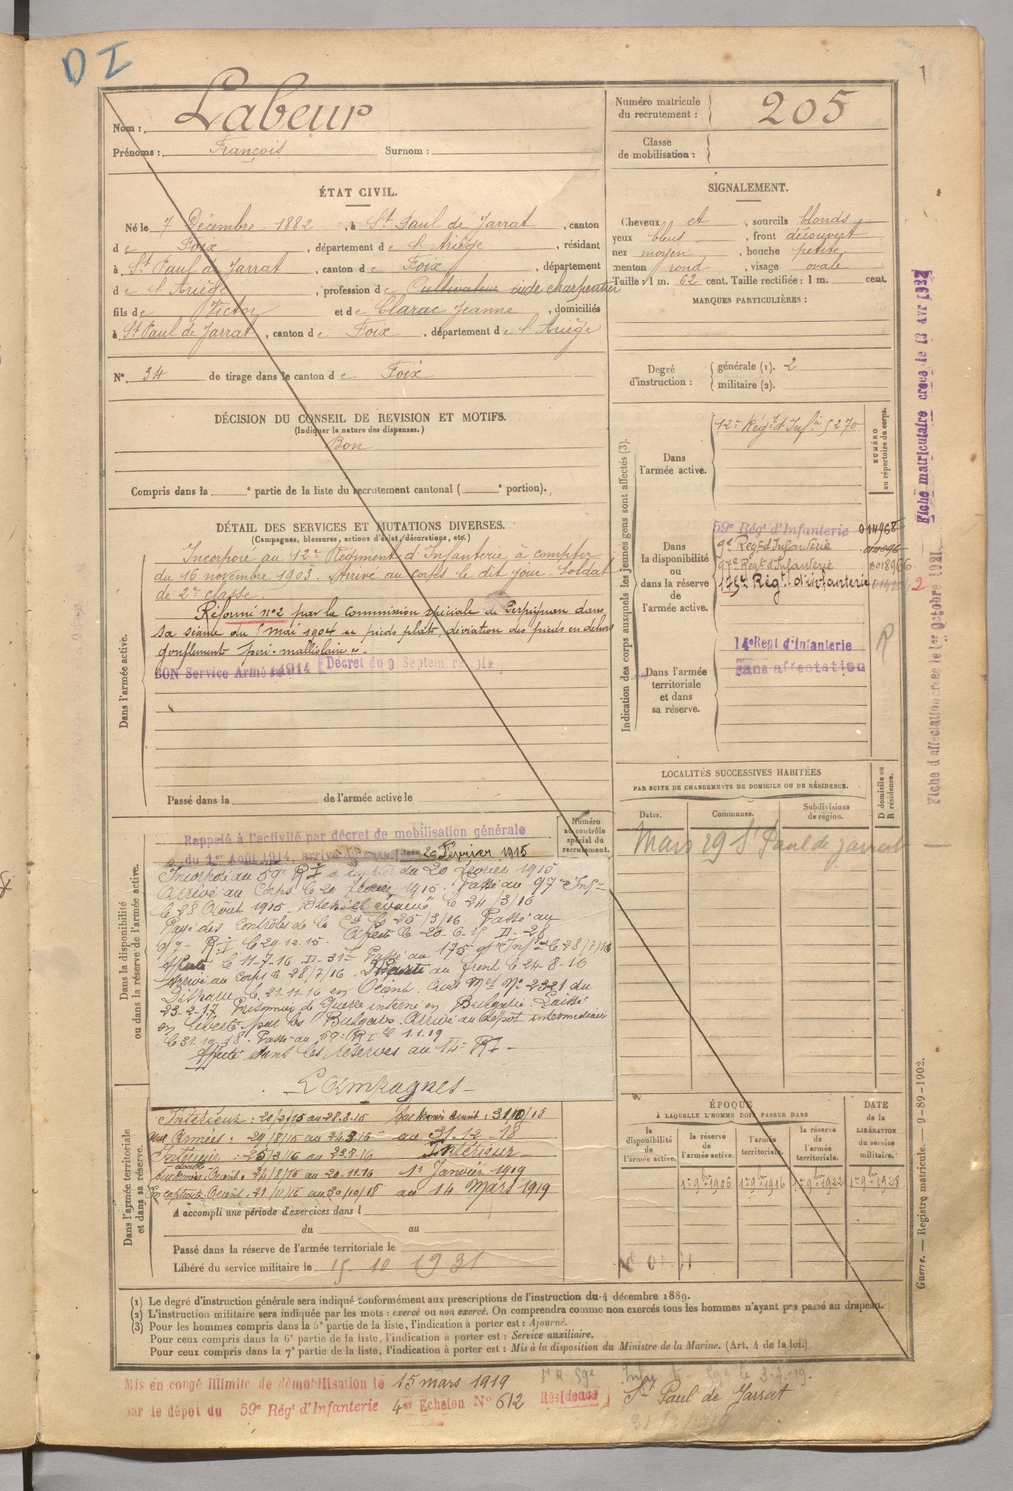 DI
Nom : Labeur
Prénoms : François Surnom :
Numéro matricule du recrutement : 205
Classe de mobilisation :
ÉTAT CIVIL.
Né le 7 Décembre 1882, à St Paul de Jarrat, canton
de Foix, département de l'Ariège, résidant
à St Paul de Jarrat, canton de Foix, département
de l'Ariège, profession de Cultivateur aide charpentier
fils de Victor et de Clarac Jeanne, domiciliés
à St Paul de Jarrat, canton de Foix, département de l'Ariège
N° 34 de tirage dans le canton de Foix
SIGNALEMENT.
Cheveux et, sourcils blonds
yeux bleus, front découvert
nez moyen, bouche petite
menton rond, visage ovale
Taille : 1 m. 62 cent. Taille rectifiée : 1 m. cent.
MARQUES PARTICULIÈRES :
Degré d'instruction : générale (1). 2
militaire (2).
DÉCISION DU CONSEIL DE REVISION ET MOTIFS.
(Indiquer la nature des dispenses.)
Bon
Compris dans la e partie de la liste du recrutement cantonal ( e portion).
DÉTAIL DES SERVICES ET MUTATIONS DIVERSES.
(Campagnes, blessures, actions d'éclat, décorations, etc.)
Dans l'armée active.
Incorporé au 12e Régiment d'Infanterie à compter
du 16 novembre 1903. Arrivé au corps le dit jour. Soldat
de 2e classe.
Réformé n°2 par la commission spéciale de Perpignan dans
sa séance du mai 1904 pieds plats, déviation des pieds en dehors
gonflement péri-malléolaire.
BON Service Armé 1914 Décret du 9 Septem
Passé dans la de l'armée active le
Indication des corps auxquels les jeunes gens sont affectés (3).
NUMÉRO au répertoire du corps.
Dans l'armée active.
12e Rég. d'Infie 5270
Dans la disponibilité ou dans la réserve de l'armée active.
59e Rég' d'Infanterie
9e Regt d'Infanterie
97e Regt d'Infanterie
175e Rég' d'infanterie
Dans l'armée territoriale et dans sa réserve.
14e Regt d'Infanterie
Sans affectation
R
Fiche matriculaire créée le 13 Avr 1932
Fiche d'affectation créée le 1er Octobre 1921
LOCALITÉS SUCCESSIVES HABITÉES
PAR SUITE DE CHANGEMENTS DE DOMICILE OU DE RÉSIDENCE.
Dates. Communes. Subdivisions de région. D domicile ou R résidence.
Mars 29 St Paul de Jarrat
Dans la disponibilité ou dans la réserve de l'armée active.
Numéro au contrôle spécial du recrutement.
Rappelé à l'activité par décret de mobilisation générale
du 1er Août 1914, arrivé 26 Février 1915
Incorporé au 59e RI du 20 février 1915
Arrivé au Corps le 20 février 1915. Passé au 97e Infie
le 28 Août 1915. évacué le 24/3/16
Passé des Contrôles de le 25/3/16 Passé au
RI le 29.12.15.
le 11-7-16 Passé au 175e d'Infie le 28/7/16
Arrivé au Corps le 28/7/16. au front le 24-8-16
Disparu le 21.11.16 en Orient. Avis Mel N° 2321 du
23-2-17. Prisonnier de Guerre interné en Bulgarie. Laissé
en liberté par les Bulgares. Arrivé au dépôt intermédiaire
Passé au 59e RI le 1.1.19
Affecté dans les réserves au 14e RI
Campagnes
Dans l'armée territoriale et dans sa réserve.
Intérieur : 20/2/15 au 28.8.15
aux Armées : 29/8/15 au 24.3.16 au 31-12-18
Intérieur : 25/3/16 au Intérieur
double Orient au 20-11-16 1er Janvier 1919
En captivité Orient : 21/11/16 au 30/10/18 au 14 Mars 1919
A accompli une période d'exercices dans l
du au
Passé dans la réserve de l'armée territoriale le
Libéré du service militaire le 15-10-1931
ÉPOQUE
À LAQUELLE L'HOMME DOIT PASSER DANS
DATE de la LIBÉRATION du service militaire.
la disponibilité de l'armée active. la réserve de l'armée active. l'armée territoriale. la réserve de l'armée territoriale.
1er 9bre 1906 1er 9bre 1916 1er 9bre 1922 1er 9bre 1928
Guerre. — Registre matricule. — 9-89-1902.
(1) Le degré d'instruction générale sera indiqué conformément aux prescriptions de l'instruction du 4 décembre 1889.
(2) L'instruction militaire sera indiquée par les mots : exercé ou non exercé. On comprendra comme non exercés tous les hommes n'ayant pas passé au drapeau.
(3) Pour les hommes compris dans la 5e partie de la liste, l'indication à porter est : Ajourné.
Pour ceux compris dans la 6e partie de la liste, l'indication à porter est : Service auxiliaire.
Pour ceux compris dans la 7e partie de la liste, l'indication à porter est : Mis à la disposition du Ministre de la Marine. (Art. 4 de la loi.)
Mis en congé illimité de démobilisation le 15 mars 1919
par le dépôt du 59e Rég' d'Infanterie 4e Echelon N° 612 Résidence St Paul de Jarrat